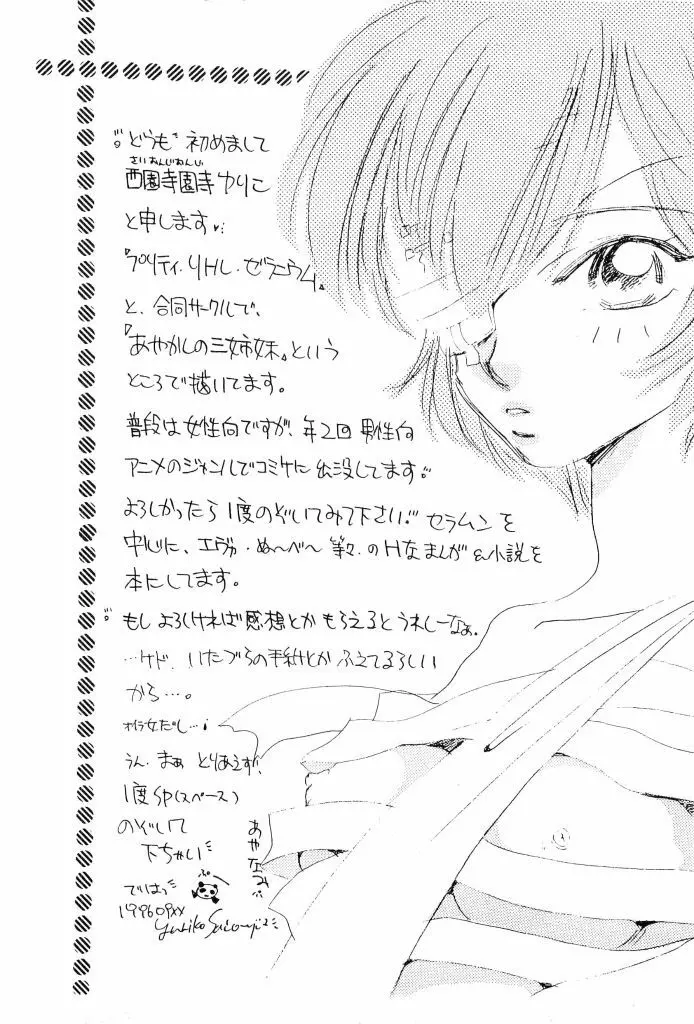 "どうも" 初めまして
さいおんじおんじ
西園寺園寺 ゆりこ
と申します♥…
『プリティ・リトル・ゼラニウム』
と、合同サークルで、
『あやかしの三姉妹』という
ところで描いてます。
普段は女性向ですが、年2回 男性向
アニメのジャンルでコミケに出没してます。
よろしかったら 1度のぞいてみて下さい。セラムンを
中心に、エヴァ・ぬ〜べ〜 等々の Hなまんが&小説を
本にしてます。
もしよろしければ感想とかもらえるとうれしーなぁ。
…ケド、いたづらの手紙とか ふえてるらしい
から…。
オイラ女だし…!
うん、まぁ とりあえず、
1度SP(スペース)
のぞいて
下ちゃい
ではっ
199609××
Yuriko Saionji2
ぷー
あやなみ